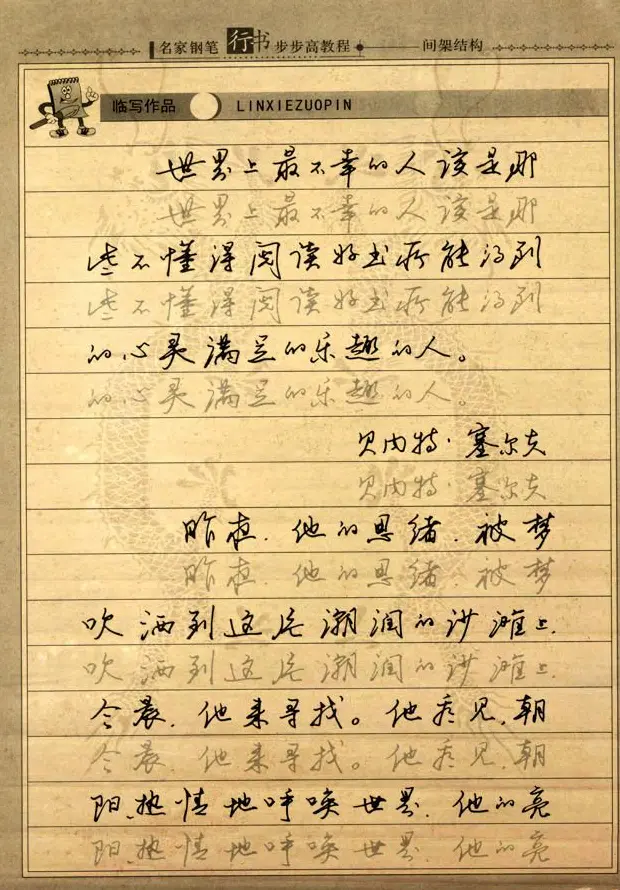 名家钢笔 行书 步步高教程 间架结构
临写作品 LINXIEZUOPIN
世界上最不幸的人该是那
世界上最不幸的人该是那
些不懂得阅读好书所能得到
些不懂得阅读好书所能得到
的心灵满足的乐趣的人。
的心灵满足的乐趣的人。
贝内特·塞尔夫
贝内特·塞尔夫
昨夜，他的思绪，被梦
昨夜，他的思绪，被梦
吹洒到这片潮润的沙滩上，
吹洒到这片潮润的沙滩上，
今晨，他来寻找。他看见，朝
今晨，他来寻找。他看见，朝
阳，热情地呼唤世界，他的亮
阳，热情地呼唤世界，他的亮